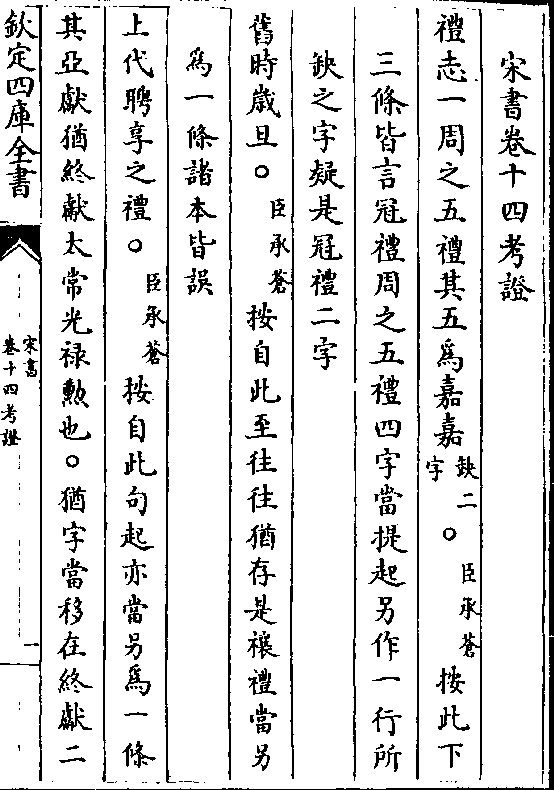 宋書卷十四考證
禮志一周之五禮其五為嘉嘉缺二字○臣承蒼按此下
三條皆言冠禮周之五禮四字當提起另作一行所
缺之字疑是冠禮二字
舊時歲旦○臣承蒼按自此至往往猶存是禳禮當另
為一條諸本皆誤
上代聘享之禮○臣承蒼按自此句起亦當另為一條
其亞獻猶終獻太常光禄勲也○猶字當移在終獻二
欽定四庫全書
宋書
卷十四考證
一